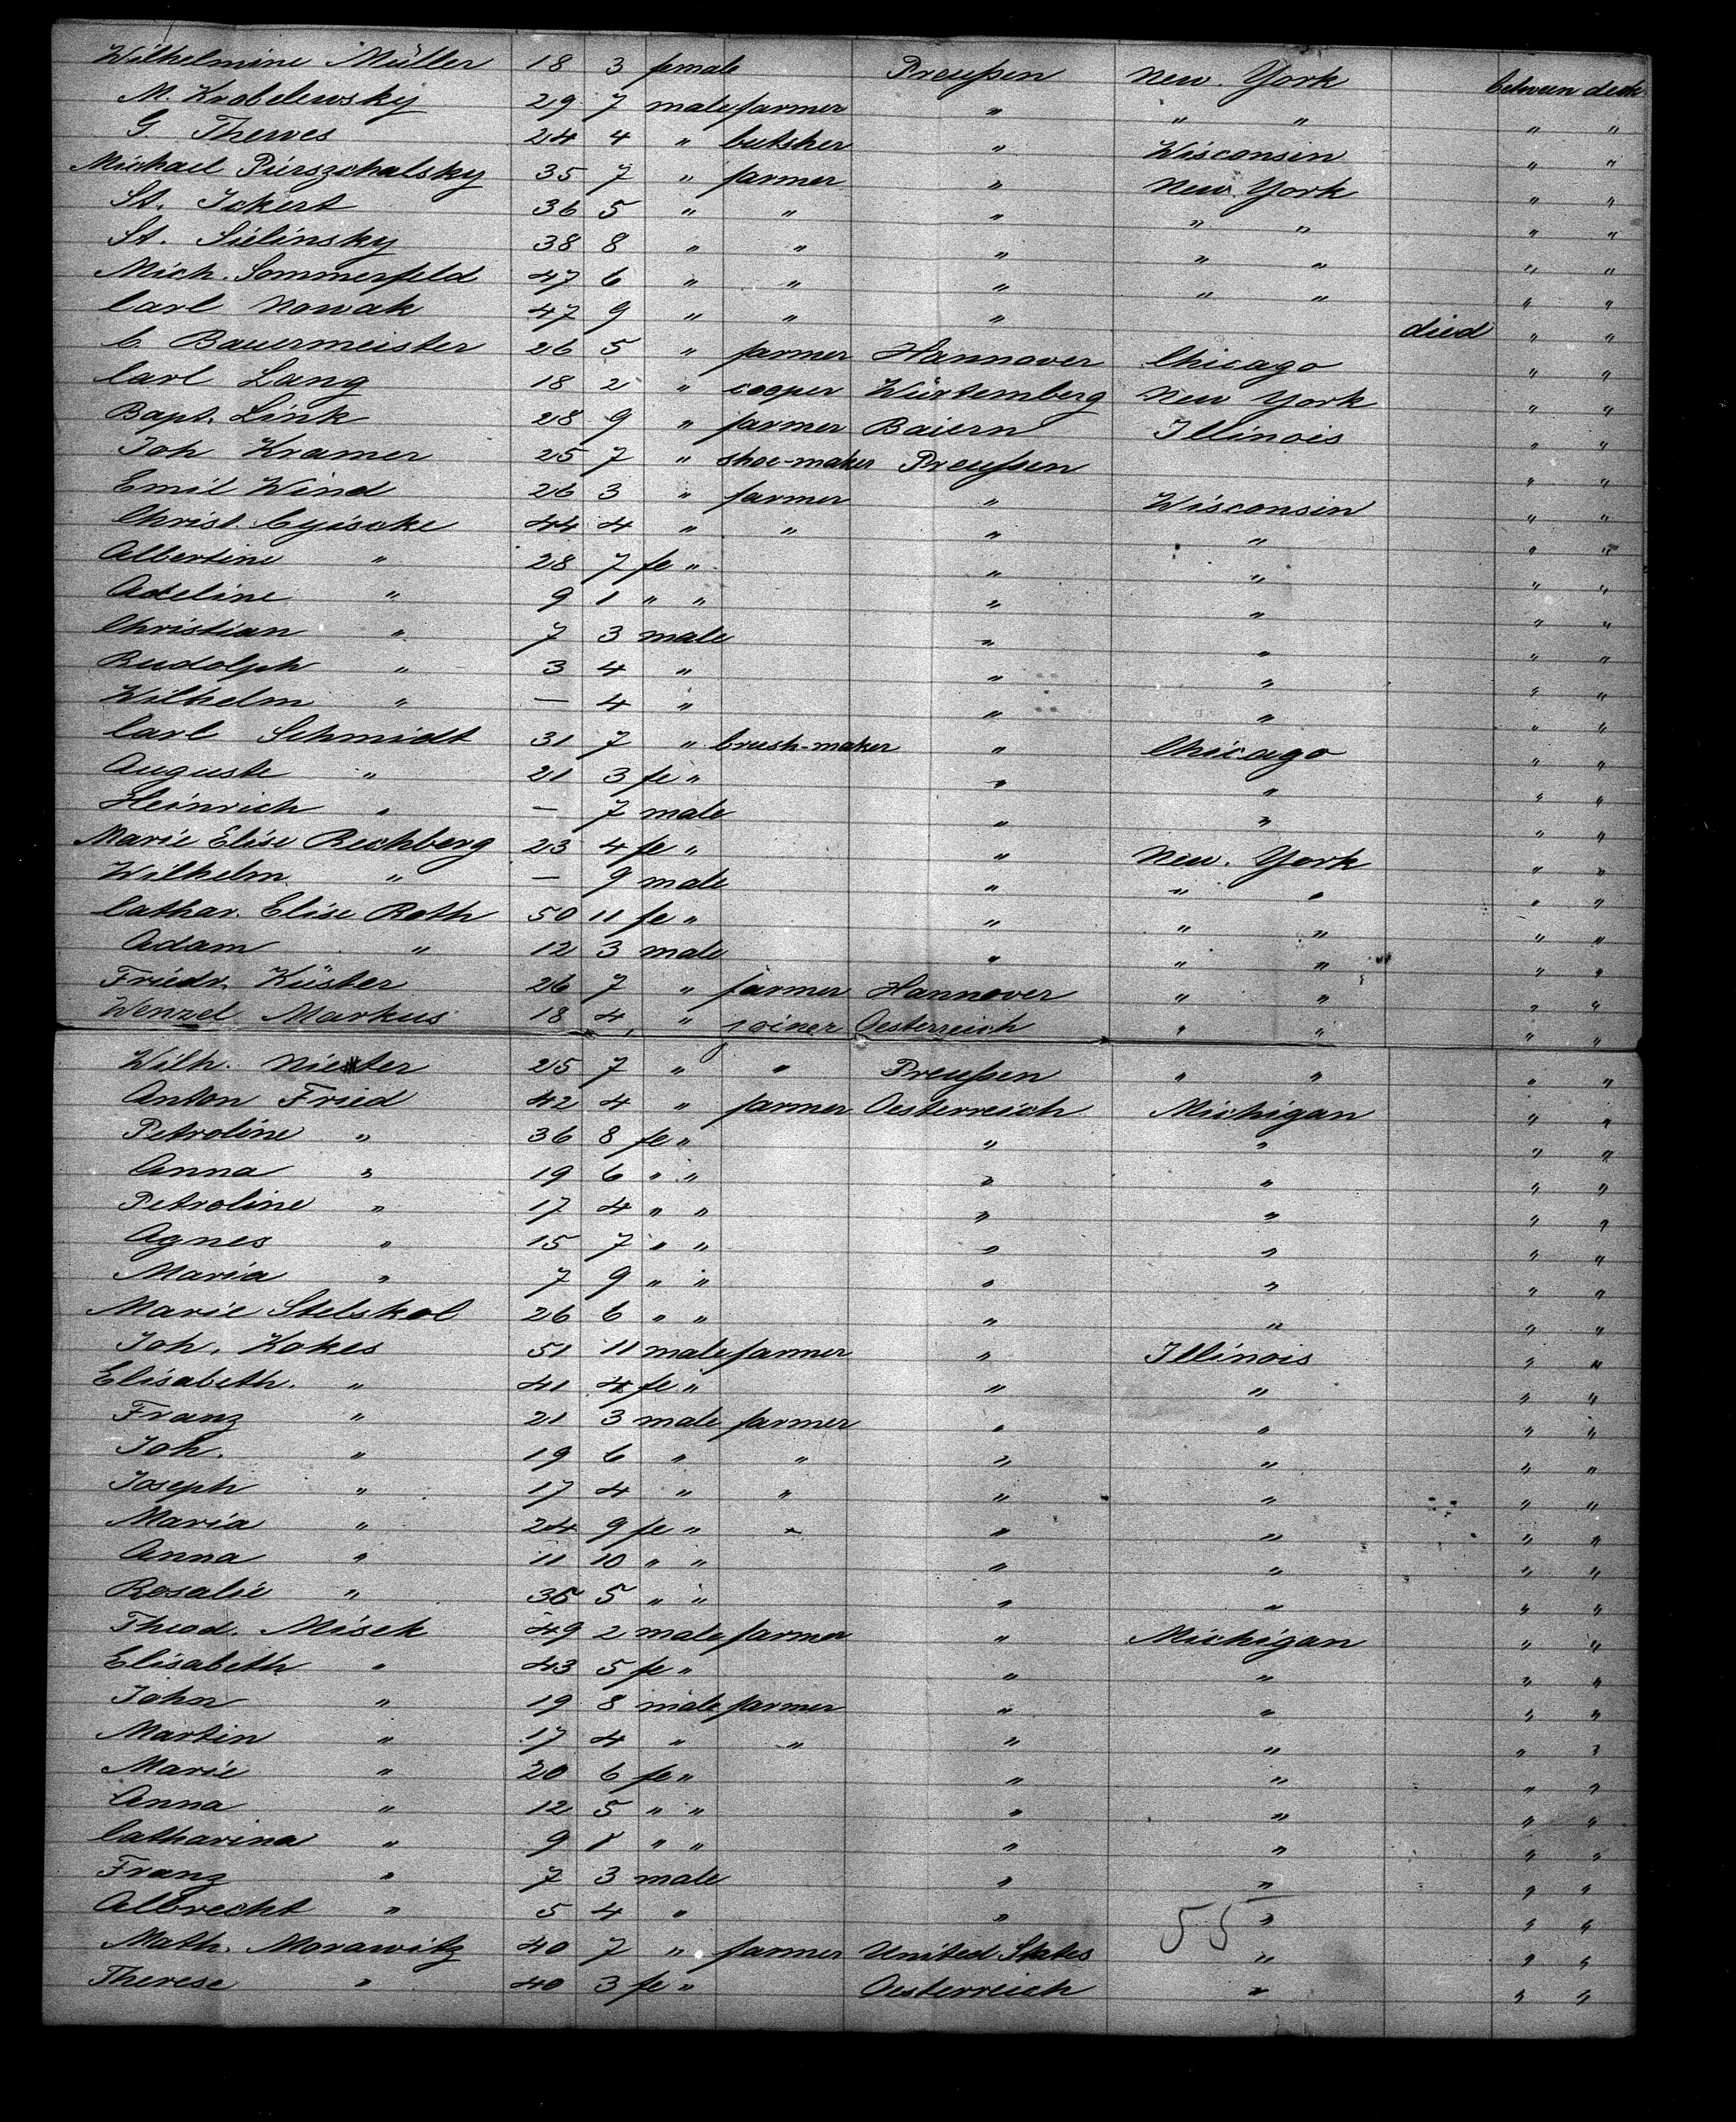 Wilhelmine Müller 18 3 female Preußen New. York between deck
M. Krobelewsky 29 7 male farmer " " " " "
G Thewes 24 4 " butsher " Wisconsin " "
Michael Pürszchalsky 35 7 " farmer " New. York " "
St. Ickert 36 5 " " " " " " "
St. Sielinsky 38 8 " " " " " " "
Mich. Sommerfeld 47 6 " " " " " " "
Carl Nowak 47 9 " " " died " "
C Bauermeister 26 5 " farmer Hannover Chicago " "
Carl Lang 18 2 " cooper Würtemberg New York " "
Bapt. Link 28 9 " farmer Baiern Illinois " "
Joh Kramer 25 7 " shoe-maker Preußen " "
Emil Wind 26 3 " farmer " Wisconsin " "
Christ. Cyiscke 44 4 " " " " " "
Albertine " 28 7 fe " " " " "
Adeline " 9 1 " " " " " "
Christian " 7 3 male " " " "
Rudolph " 3 4 " " " " "
Wilhelm " — 4 " " " " "
Carl Schmidt 31 7 " brush-maker " Chicago " "
Auguste " 21 3 fe " " " " "
Heinrich " — 7 male " " " "
Marie Elise Rechberg 23 4 fe " " New. York " "
Wilhelm " — 9 male " " " " "
Cathar. Elise Roth 50 11 fe " " " " " "
Adam " 12 3 male " " " " "
Friedr. Küster 26 7 " farmer Hannover " " " "
Wenzel Markus 18 4 " joiner Oesterreich " " " "
Wilh. Niester 25 7 " " Preußen " " " "
Anton Fried 42 4 " farmer Oesterreich Michigan " "
Petroline " 36 8 fe " " " " "
Anna " 19 6 " " " " " "
Petroline " 17 4 " " " " " "
Agnes " 15 7 " " " " " "
Maria " 7 9 " " " " " "
Marie Stelskol 26 6 " " " " " "
Joh. Kokes 51 11 male farmer " Illinois " "
Elisabeth. " 41 4 fe " " " " "
Franz " 21 3 male farmer " " " "
Joh. " 19 6 " " " " " "
Joseph " 17 4 " " " " " "
Maria " 24 9 fe " " " " " "
Anna " 11 10 " " " " " "
Rosalie " 36 5 " " " " " "
Theod. Misek 49 2 male farmer " Michigan " "
Elisabeth " 43 5 fe " " " " "
John " 19 8 male farmer " " " "
Martin " 17 4 " " " " " "
Marie " 20 6 fe " " " " "
Anna " 12 5 " " " " " "
Catharina " 9 1 " " " " " "
Franz " 7 3 male " " " "
Albrecht " 5 4 " " " " "
55
Math. Morawitz 40 7 " farmer United States " " "
Therese " 40 3 fe " Oesterreich " " "